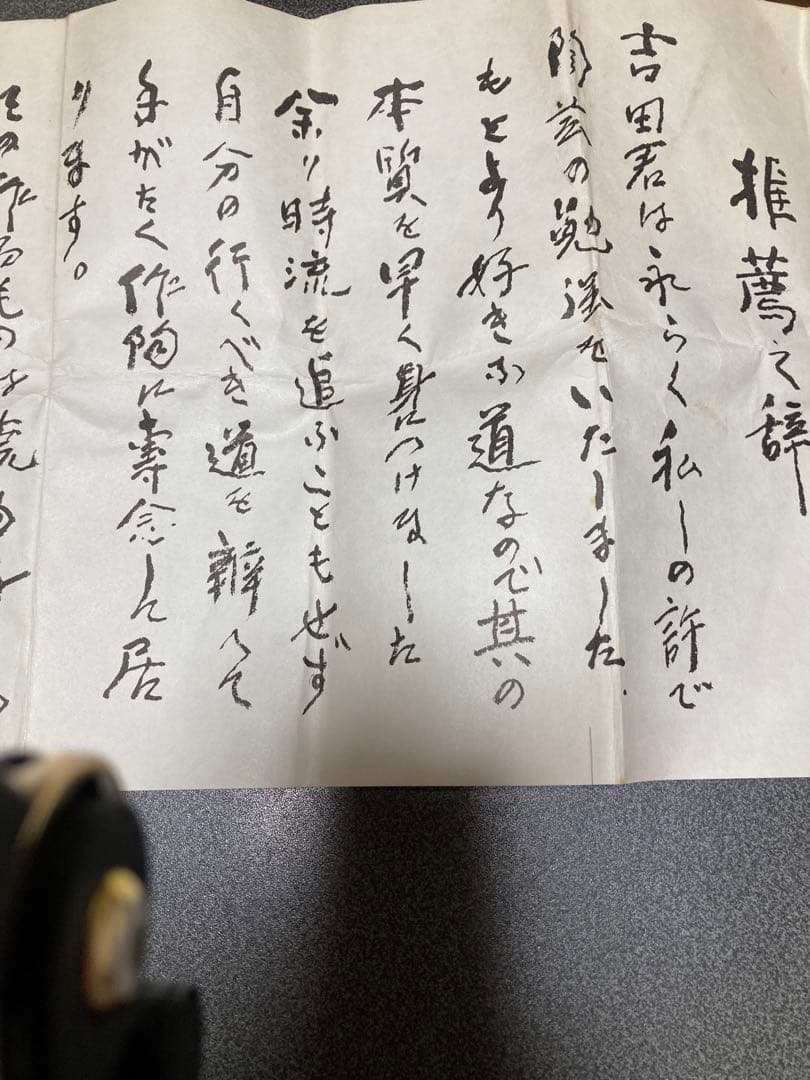 推薦之辞
吉田君は永らく私しの許で
陶芸の勉強をいたしました.
もとより好きな道なので其の
本質を早く身につけました
余り時流を追ふこともせず
自分の行くべき道を辧へて
手がたく作陶に専念して居
ります。